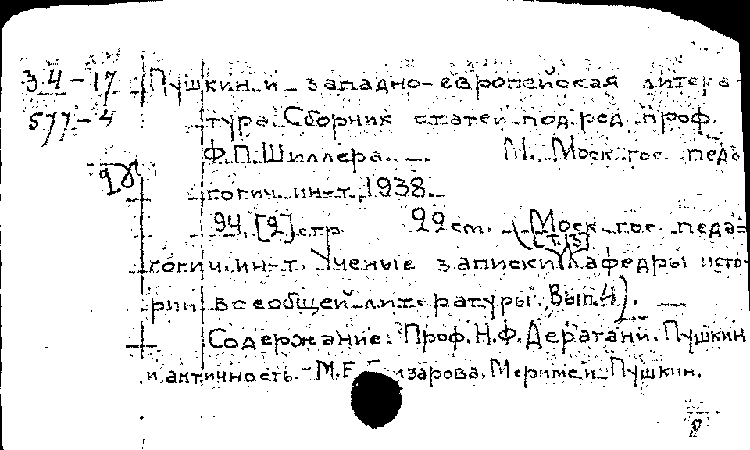 34-17 Пушкин и западно-европейская литера-
577-4 тура. Сборник статей под ред. проф.
Ф.П. Шиллера. — М. Моск. гос. педа-
гогич. ин-т, 1938.
94, [2] стр. 22 см. (Моск. гос. педа-
гогич. ин-т. Ученые записки кафедры исто-
рии всеобщей литературы. Вып. 4). —
Содержание: Проф. Н.Ф. Дератани. Пушкин
и античность. - М.Е. Мериме и Пушкин.